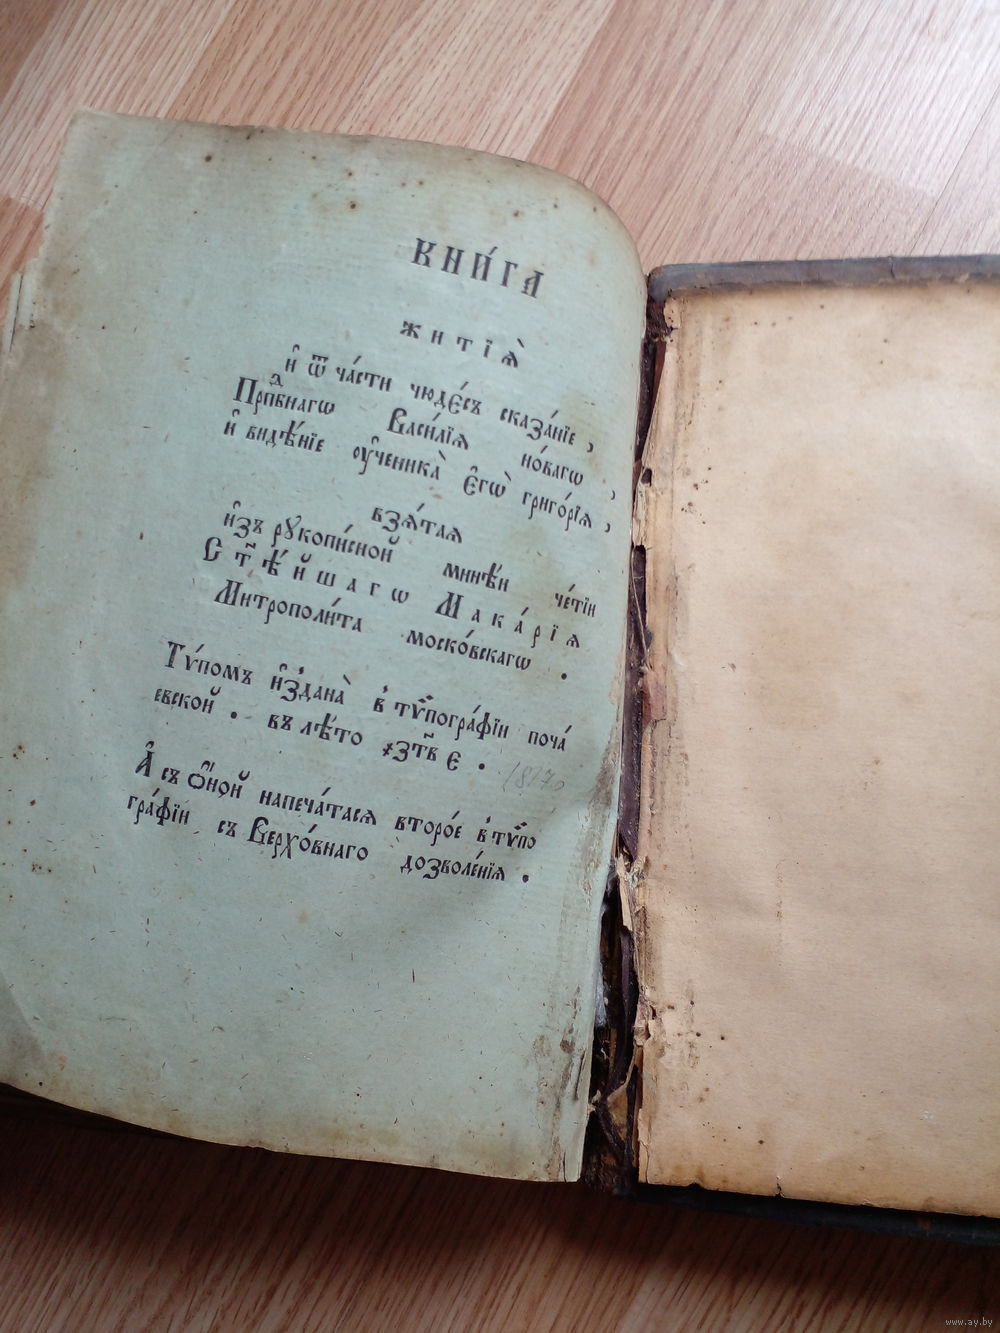 КНИ́ГА
житїѧ̀
и҆ ѿ ча́сти чюде́съ сказа́нїе,
Прпⷣбнагѡ Васи́лїѧ но́вагѡ,
и҆ виде́нїе оу҆ченика̀ є҆гѡ̀ григо́рїѧ,
взѧ́таѧ
и҆зъ рꙋкопи́сной мине́и че́тїи
Ст҃ѣ́йшагѡ Мака́рїѧ
Митрополи́та моско́вскагѡ.
Тѵ́помъ и҆здана̀ в̾ тѵпогра́фїи поча́
евской. въ лѣ́то ҂зт҃в є.
А҆ съ ѻ҆ной напеча́тасѧ второ́е в̾ тѵпо
гра́фїи съ Верхо́внаго дозволе́нїѧ.
www.ay.by